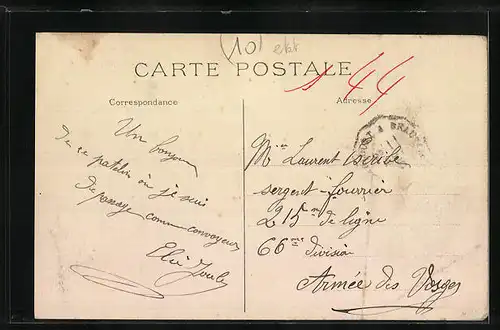 (10)
CARTE POSTALE
Correspondance
Adresse
Un bonjour
de ce patelin où je suis
de passage comme convoyeur
Elie
Mr Laurent
sergent-fourrier
215me de ligne
66me division
Armée des Vosges